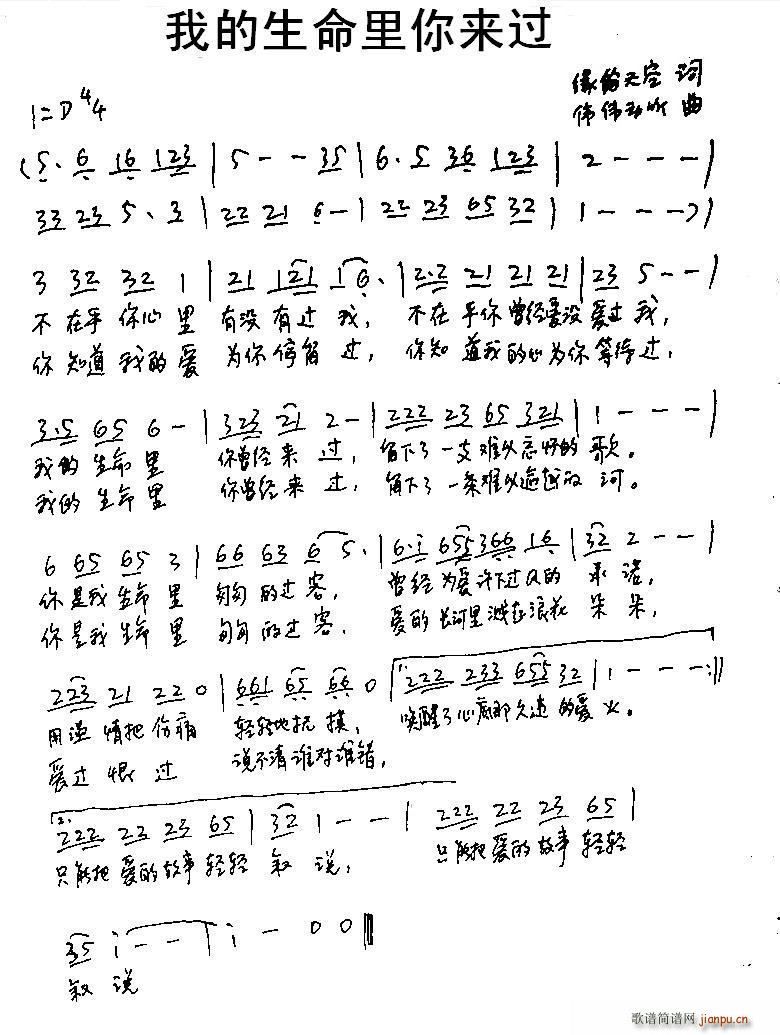 我的生命里你来过
缘的天空 词
1=D 4/4
伟伟动听 曲
(5· 6 16 123 | 5 - - 35 | 6· 5 36 123 | 2 - - - |
33 23 5· 3 | 22 21 6 - | 22 23 65 32 | 1 - - -) |
3 32 32 1 | 21 121 16· | 2·2 21 21 21 | 23 5 - - |
不在乎你心里 有没有过我, 不在乎你曾经爱没爱过我,
你知道我的爱 为你停留过, 你知道我的心为你等待过,
3·5 65 6 - | 323 21 2 - | 222 23 65 321 | 1 - - - |
我的生命里 你曾经来过, 留下了一支难以忘怀的歌。
我的生命里 你曾经来过, 留下了一条难以逾越的河。
6 65 65 3 | 66 63 6 5· | 6·i 655 366 16 | 32 2 - - |
你是我生命里 匆匆的过客, 曾经为爱许下过的承诺,
你是我生命里 匆匆的过客, 爱的长河里溅起浪花朵朵,
223 21 22 0 | 661 65 66 0 | 1. 222 233 655 32 | 1 - - - :||
用温情把伤痛 轻轻地抚摸, 唤醒了心底那久违的爱火。
爱过恨过 说不清谁对谁错,
2. 222 23 23 65 | 32 1 - - | 222 22 23 65 |
只能把爱的故事轻轻叙说, 只能把爱的故事轻轻
35 i - - | i - 0 0 ||
叙说
歌谱简谱网
jianpu.cn